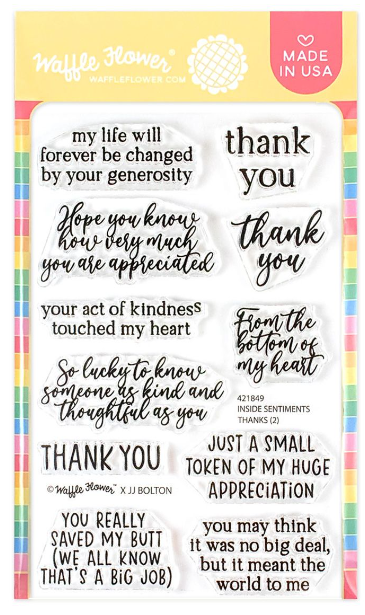 Waffle Flower®
WAFFLEFLOWER.COM
MADE
IN USA
my life will
forever be changed
by your generosity
thank
you
Hope you know
how very much
you are appreciated
thank
you
your act of kindness
touched my heart
From the
bottom of
my heart
So lucky to know
someone as kind and
thoughtful as you
421849
INSIDE SENTIMENTS
THANKS (2)
THANK YOU
JUST A SMALL
TOKEN OF MY HUGE
APPRECiATiON
© Waffle Flower™ X JJ BOLTON
YOU REALLY
SAVED MY BUTT
(WE ALL KNOW
THAT'S A BiG JOB)
you may think
it was no big deal,
but it meant the
world to me